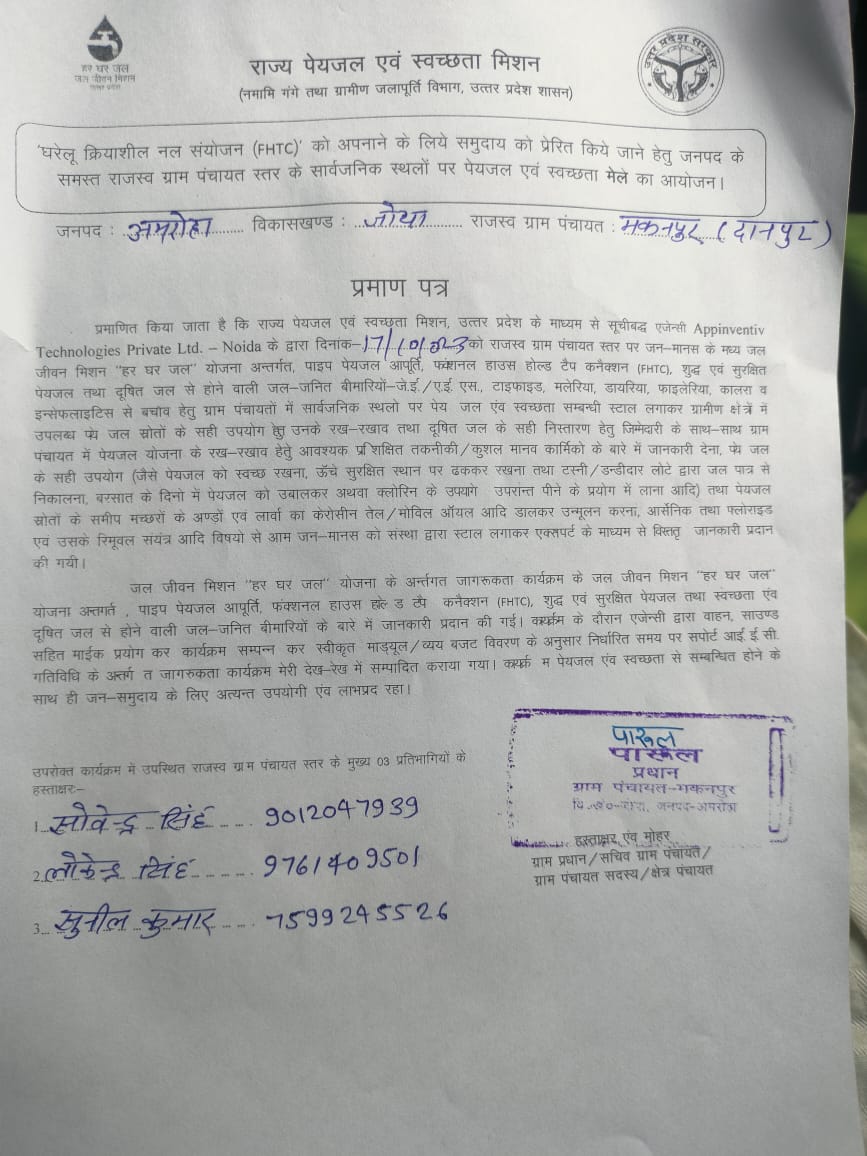 हर घर जल
जल जीवन मिशन
उत्तर प्रदेश
राज्य पेयजल एवं स्वच्छता मिशन
(नमामि गंगे तथा ग्रामीण जलापूर्ति विभाग, उत्तर प्रदेश शासन)
उत्तर प्रदेश सरकार
'घरेलू क्रियाशील नल संयोजन (FHTC)' को अपनाने के लिये समुदाय को प्रेरित किये जाने हेतु जनपद के
समस्त राजस्व ग्राम पंचायत स्तर के सार्वजनिक स्थलों पर पेयजल एवं स्वच्छता मेले का आयोजन।
जनपद : अमरोहा विकासखण्ड : जोया राजस्व ग्राम पंचायत : मकनपुर (दानपुर)
प्रमाण पत्र
प्रमाणित किया जाता है कि राज्य पेयजल एवं स्वच्छता मिशन, उत्तर प्रदेश के माध्यम से सूचीबद्ध एजेन्सी Appinventiv
Technologies Private Ltd. – Noida के द्वारा दिनांक- 17/10/023 को राजस्व ग्राम पंचायत स्तर पर जन–मानस के मध्य जल
जीवन मिशन "हर घर जल" योजना अन्तर्गत, पाइप पेयजल आपूर्ति, फंक्शनल हाउस होल्ड टैप कनैक्शन (FHTC), शुद्ध एवं सुरक्षित
पेयजल तथा दूषित जल से होने वाली जल–जनित बीमारियों–जे.ई./ए.ई एस., टाइफाइड, मलेरिया, डायरिया, फाइलेरिया, कालरा व
इन्सेफलाइटिस से बचाव हेतु ग्राम पंचायतों में सार्वजनिक स्थलो पर पेय जल एंव स्वच्छता सम्बन्धी स्टाल लगाकर ग्रामीण क्षेत्रें में
उपलब्ध पेय जल स्रोतों के सही उपयोग हेतु उनके रख–रखाव तथा दूषित जल के सही निस्तारण हेतु जिमेदारी के साथ–साथ ग्राम
पंचायत में पेयजल योजना के रख–रखाव हेतु आवश्यक प्रशिक्षित तकनीकी/कुशल मानव कार्मिको के बारे में जानकारी देना, पेय जल
के सही उपयोग (जैसे पेयजल को स्वच्छ रखना, ऊँचे सुरक्षित स्थान पर ढककर रखना तथा टस्नी/डन्डीदार लोटे द्वारा जल पात्र से
निकालना, बरसात के दिनो में पेयजल को उबालकर अथवा क्लोरिन के उपयोग उपरान्त पीने के प्रयोग में लाना आदि) तथा पेयजल
स्रोतों के समीप मच्छरों के अण्डों एवं लार्वा का केरोसीन तेल/मोविल ऑयल आदि डालकर उन्मूलन करना, आर्सेनिक तथा फ्लोराइड
एवं उसके रिमूवल सयंत्र आदि विषयो से आम जन–मानस को संस्था द्वारा स्टाल लगाकर एक्सपर्ट के माध्यम से विस्तृत जानकारी प्रदान
की गयी।
जल जीवन मिशन "हर घर जल" योजना के अर्न्तगत जागरूकता कार्यक्रम के जल जीवन मिशन "हर घर जल"
योजना अन्तगर्त , पाइप पेयजल आपूर्ति, फंक्शनल हाउस होल्ड टैप कनैक्शन (FHTC), शुद्ध एवं सुरक्षित पेयजल तथा स्वच्छता एंव
दूषित जल से होने वाली जल–जनित बीमारियों के बारे में जानकारी प्रदान की गई। कार्यक्रम के दौरान एजेन्सी द्वारा वाहन, साउण्ड
सहित माईक प्रयोग कर कार्यक्रम सम्पन्न कर स्वीकृत माड्यूल/व्यय बजट विवरण के अनुसार निर्धारित समय पर सपोर्ट आई.ई.सी.
गतिविधि के अर्न्तगत जागरुकता कार्यक्रम मेरी देख–रेख में सम्पादित कराया गया। कार्यक्रम पेयजल एंव स्वच्छता से सम्बन्धित होने के
साथ ही जन–समुदाय के लिए अत्यन्त उपयोगी एंव लाभप्रद रहा।
उपरोक्त कार्यक्रम में उपस्थित राजस्व ग्राम पंचायत स्तर के मुख्य 03 प्रतिभागियों के
हस्ताक्षरः–
1. सोवेन्द्र सिंह 9012047939
2. लोकेन्द्र सिंह 9761409501
3. सुनील कुमार 7599245526
पारूल
पारूल
प्रधान
ग्राम पंचायत-मकनपुर
वि.ख०-जोया, जनपद-अमरोहा
हस्ताक्षर एंव मोहर
ग्राम प्रधान/सचिव ग्राम पंचायत/
ग्राम पंचायत सदस्य/क्षेत्र पंचायत